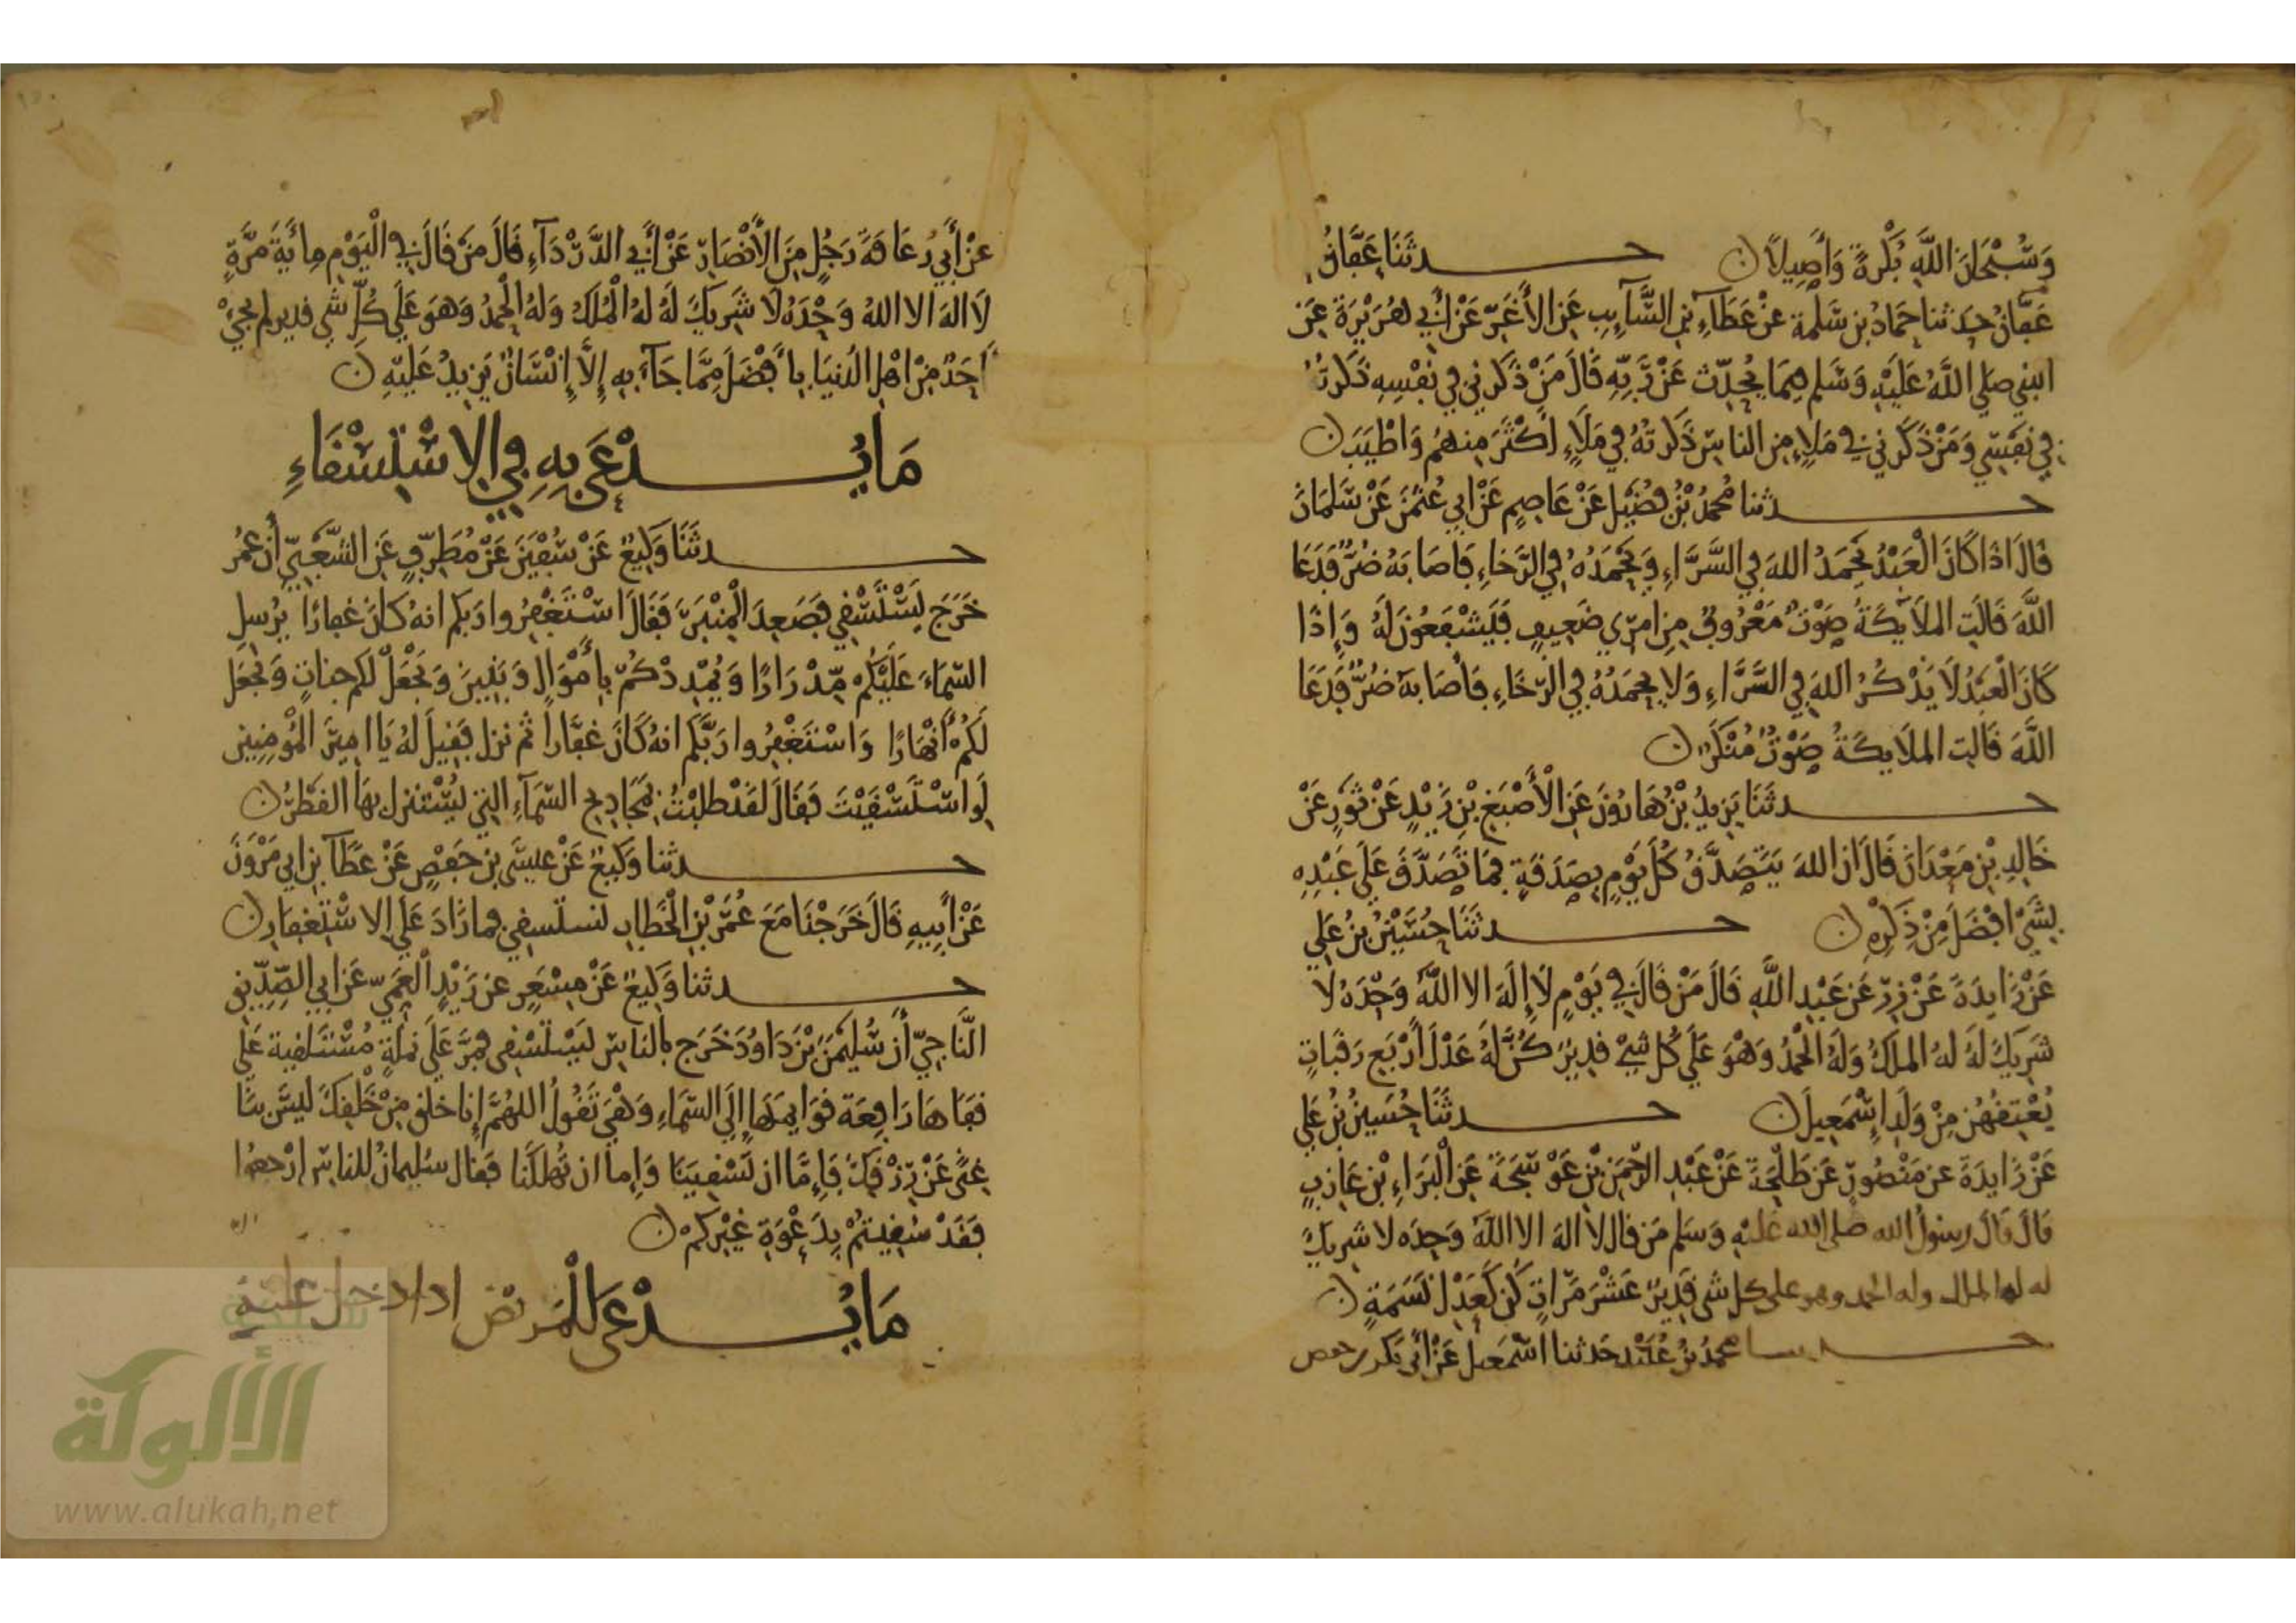 وَسُبْحَانَ اللَّهِ بُكْرَةً وَأَصِيلاً ن حدثَنَا عَفَّانُ
عَفَّانُ حدثنا حَمَادُ بن سَلَمة عَنْ عَطَاءِ بْنِ السَّآيِبِ عَنِ الأَغَرِّ عَنْ أَبِي هُرَيْرَةَ عَنِ
النبي صلى اللَّهُ عَلَيْهِ وَسَلم فيمَا يُحَدِّث عَنْ رَّبِّهِ قَالَ مَنْ ذَكَرني في نَفْسِهِ ذَكَرتُهُ
في نَفْسِي وَمَنْ ذَكَرني في مَلإٍ مِن الناسِ ذَكَرتُهُ فِي مَلإٍ أَكْثَرَ مِنهُم وَاطْيَبَ ن
حدثنا مُحمدُ بْنُ فُضَيْل عَنْ عَاصِمٍ عَنْ ابي عُثمنَ عَنْ سَلمَانَ
قَالَ اذَا كَانَ الْعَبْدُ يَحْمَدُ اللهَ فِي السَّرَّاءِ وَيَحْمَدُهُ فِي الرَّخَاءِ فَأصَابَهُ ضُرٌّ فَدَعَا
اللَّهَ قَالَتِ المَلاَيِكَةُ صَوْتٌ مَعْرُوفٌ مِن امرِي ضَعِيفٍ فَيَشْفَعُونَ لَهُ وَإِذَا
كَانَ الْعَبْدُ لاَ يَذْكُرُ اللهَ فِي السَّرَّاءِ وَلا يحمَدُهُ فِي الرَّخَاءِ فَأصَابهُ ضُرٌّ فَدَعَا
اللَّهَ قَالت المَلاَيكَةُ صَوْتٌ مُنْكَرٌ ن
حدثَنَا يَزِيدُ بْنُ هَارُونَ عَنِ الْأَصْبَغِ بْنِ زَيْدٍ عَنْ ثَورٍ عَنْ
خَالِدِ بْنِ مَعْدَانَ قَالَ ان اللهَ يَتَصَدَّقُ كُلَّ يَوْمٍ بِصَدَقَةٍ فمَا تَصَدَّقَ عَلَى عَبْدِه
بِشَيْ افْضَلَ مِنْ ذِكْرِهِ ن حدثَنَا حُسَيْنُ بْنُ عَلِي
عَنْ زَايدَةَ عَنْ زِرّ عَن عَبْدِ اللَّهِ قَالَ مَنْ قَالَ فِي يَوْمٍ لَا إِلَهَ الا اللَّهُ وَحْدَهُ لَا
شَرِيكَ لَهُ لهُ المُلكُ وَلَهُ الْحَمْدُ وَهْوَ عَلَى كُل شَيْ قدِيرٌ كُنَّ لَهُ عَدْلَ أَرْبَعِ رَقَبَاتٍ
يُعْتِقُهُن مِنْ وَلَدِ إِسْمَعِيلَ ن حدثَنَا حُسَينُ بْنُ عَلي
عَنْ زَايدَةَ عن مَنْصُورٍ عَن طَلْحَةَ عَنْ عَبْدِ الرَّحْمَنِ بْنِ عَوْسَجَةَ عَنِ الْبَرَاءِ بْنِ عَازِبٍ
قَالَ قَالَ رسولُ الله صلى الله عَليْهِ وَسَلم مَن قال لاَ الهَ الا اللَّهُ وَحدَه لا شرِيكَ
له له الملك وله الحمد وهو على كل شى قَدِيرٌ عَشْرَ مَرَّاتٍ كُنَّ كَعَدْلِ نَسَمَةٍ ن
حدثنا محمدُ بْنُ عُبَيْد حَدثنا اسْمَعيل عَنْ أبي بَكْر بن حفص
عَنْ أَبِي رُعَافَةَ رَجُلٍ مِنَ الأَنْصَارِ عَنْ أَبِي الدَّرْدَآءِ قَالَ مَنْ قَالَ فِي الْيَوْمِ مِايَةَ مَرَّةٍ
لَا الهَ الا اللهُ وَحْدَهُ لَا شَرِيكَ لَهُ لهُ الْمُلكُ وَلهُ الْحَمدُ وَهوَ عَلَى كُلِّ شَى قدير لم يجيْ
أَحَدٌ مِنْ اهْلِ الدُنيَا بأفْضَلَ مِمَّا جَآءَ بِهِ إِلاَّ إِنْسَانٌ يَزيدُ عَليْهِ ن
مَا يُدْعَى بِهِ فِي الِاسْتِسْقَاءِ
حدثَنَا وَكِيعٌ عَنْ سُفْيَنَ عَنْ مُطَرِّفٍ عَنِ الشَّعْبِيّ أَن عُمَرَ
خَرَجَ يَسْتَسْقِي فصَعِدَ الْمِنْبَرَ فَقَالَ اسْتَغْفِرُوا رَبكم انهُ كانَ غفارًا يُرْسِلِ
السّمَاءَ عَلَيْكُم مِّدْرَارًا وَيُمْدِدْكُمْ بِأَمْوَالٍ وَبَنِينَ وَيَجْعَلْ لكم جناتٍ وَيَجْعَل
لَكُمْ أَنْهَارًا وَاسْتَغْفِرُوا رَبَّكُم انهُ كَانَ غفَّاراً ثم نزل فقِيلَ لهُ يَا امِيرَ المُوْمِنِينَ
لَوِ اسْتَسْقَيْتَ فقَالَ لقَدْ طلبْتُ بمَجَادِيحِ السّمَآءِ التي يُسْتنزل بهَا القَطْرُ ن
حدثنا وَكيعٌ عَنْ عِيسَى بن حَفْصٍ عَنْ عَطَآ بن ابي مَرْوَنَ
عَنْ أَبِيهِ قَالَ خَرَجْنَا مَعَ عُمَرَ بْنِ الْخَطَّابِ نستسقي فما زَادَ عَلَى الاسْتِغفَارِ ن
حدثنا وَكِيعٌ عَنْ مِسْعَرٍ عن زَيْدٍ الْعَمِّيّ عَن ابي الصِّدِّيقِ
النَّاجِيّ أَنَّ سُلَيْمَنَ بْنَ دَاوُدَ خَرَجَ بالناسِ يَسْتَسْقِي فمَرَّ عَلَى نملةٍ مُسْتَلقية عَلى
قفَاهَا رَافِعَة قوَايمَهَا إِلَى السّمَاءِ وَهْيَ تَقُولُ اللهُمَّ إِنا خلق مِنْ خَلْقِكَ ليسَ بنَا
غِنًى عَنْ رِزْقِكَ فَإِمَّا ان تَسْقِيَنَا وَإِما ان تُهلكَنا فقال سُليمانُ للناسِ ارْجعُوا
فقَدْ سُقِيتُمْ بِدَعْوَةِ غيْرِكُمْ ن
مَا يُدْعَى لِلْمَريض اذا دخل عليه
الألوكة
www.alukah.net